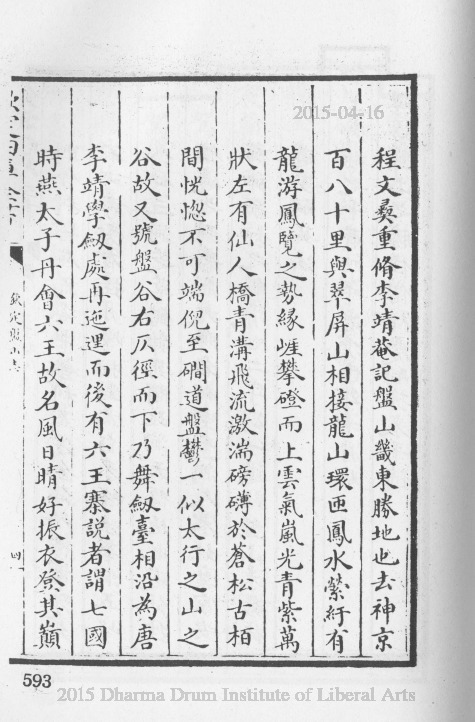 2015-04-16
程文彝重脩李靖菴記盤山畿東勝地也去神京
百八十里與翠屏山相接龍山環匝鳳水縈紆有
龍游鳳覽之勢緣崕攀磴而上雲氣嵐光青紫萬
狀左有仙人橋青溝飛流激湍磅礴於蒼松古栢
間恍惚不可端倪至磵道盤鬱一似太行之山之
谷故又號盤谷右仄徑而下乃舞劔臺相沿為唐
李靖學劔處再迤邐而後有六王寨説者謂七國
時燕太子丹會六王故名風日晴好振衣登其巔
欽定盤山志
四
593
2015 Dharma Drum Institute of Liberal Arts